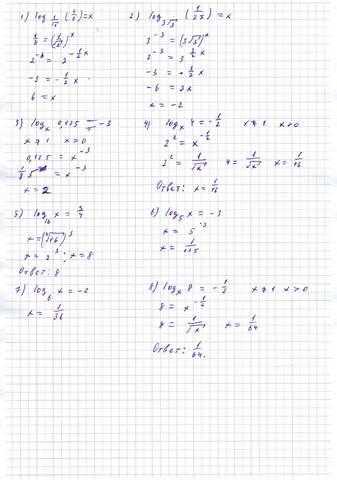 1) log 1/√2 (1/8) = x
1/8 = (1/√2)^x
2^-3 = 2^-1/2 x
-3 = -1/2 x
6 = x
2) log 3√3 (1/27) = x
3^-3 = (3√3)^x
3^-3 = 3^3/2 x
-3 = 3/2 x
-6 = 3x
x = -2
3) log x 0,125 = -3
x ≠ 1 x > 0
0,125 = x^-3
1/8 = x^-3
x = 2
4) log x 4 = -1/2 x ≠ 1 x > 0
2^2 = x^-1/2
2^2 = 1/√x 4 = 1/√x x = 1/16
Ответ: x = 1/16
5) log 16 x = 3/4
x = (⁴√16)^3
x = 2^3; x = 8
Ответ: 8
6) log 5 x = -3
x = 5^-3
x = 1/125
7) log 6 x = -2
x = 1/36
8) log x 8 = -1/2 x ≠ 1 x > 0
8 = x^-1/2
8 = 1/√x x = 1/64
Ответ: 1/64.